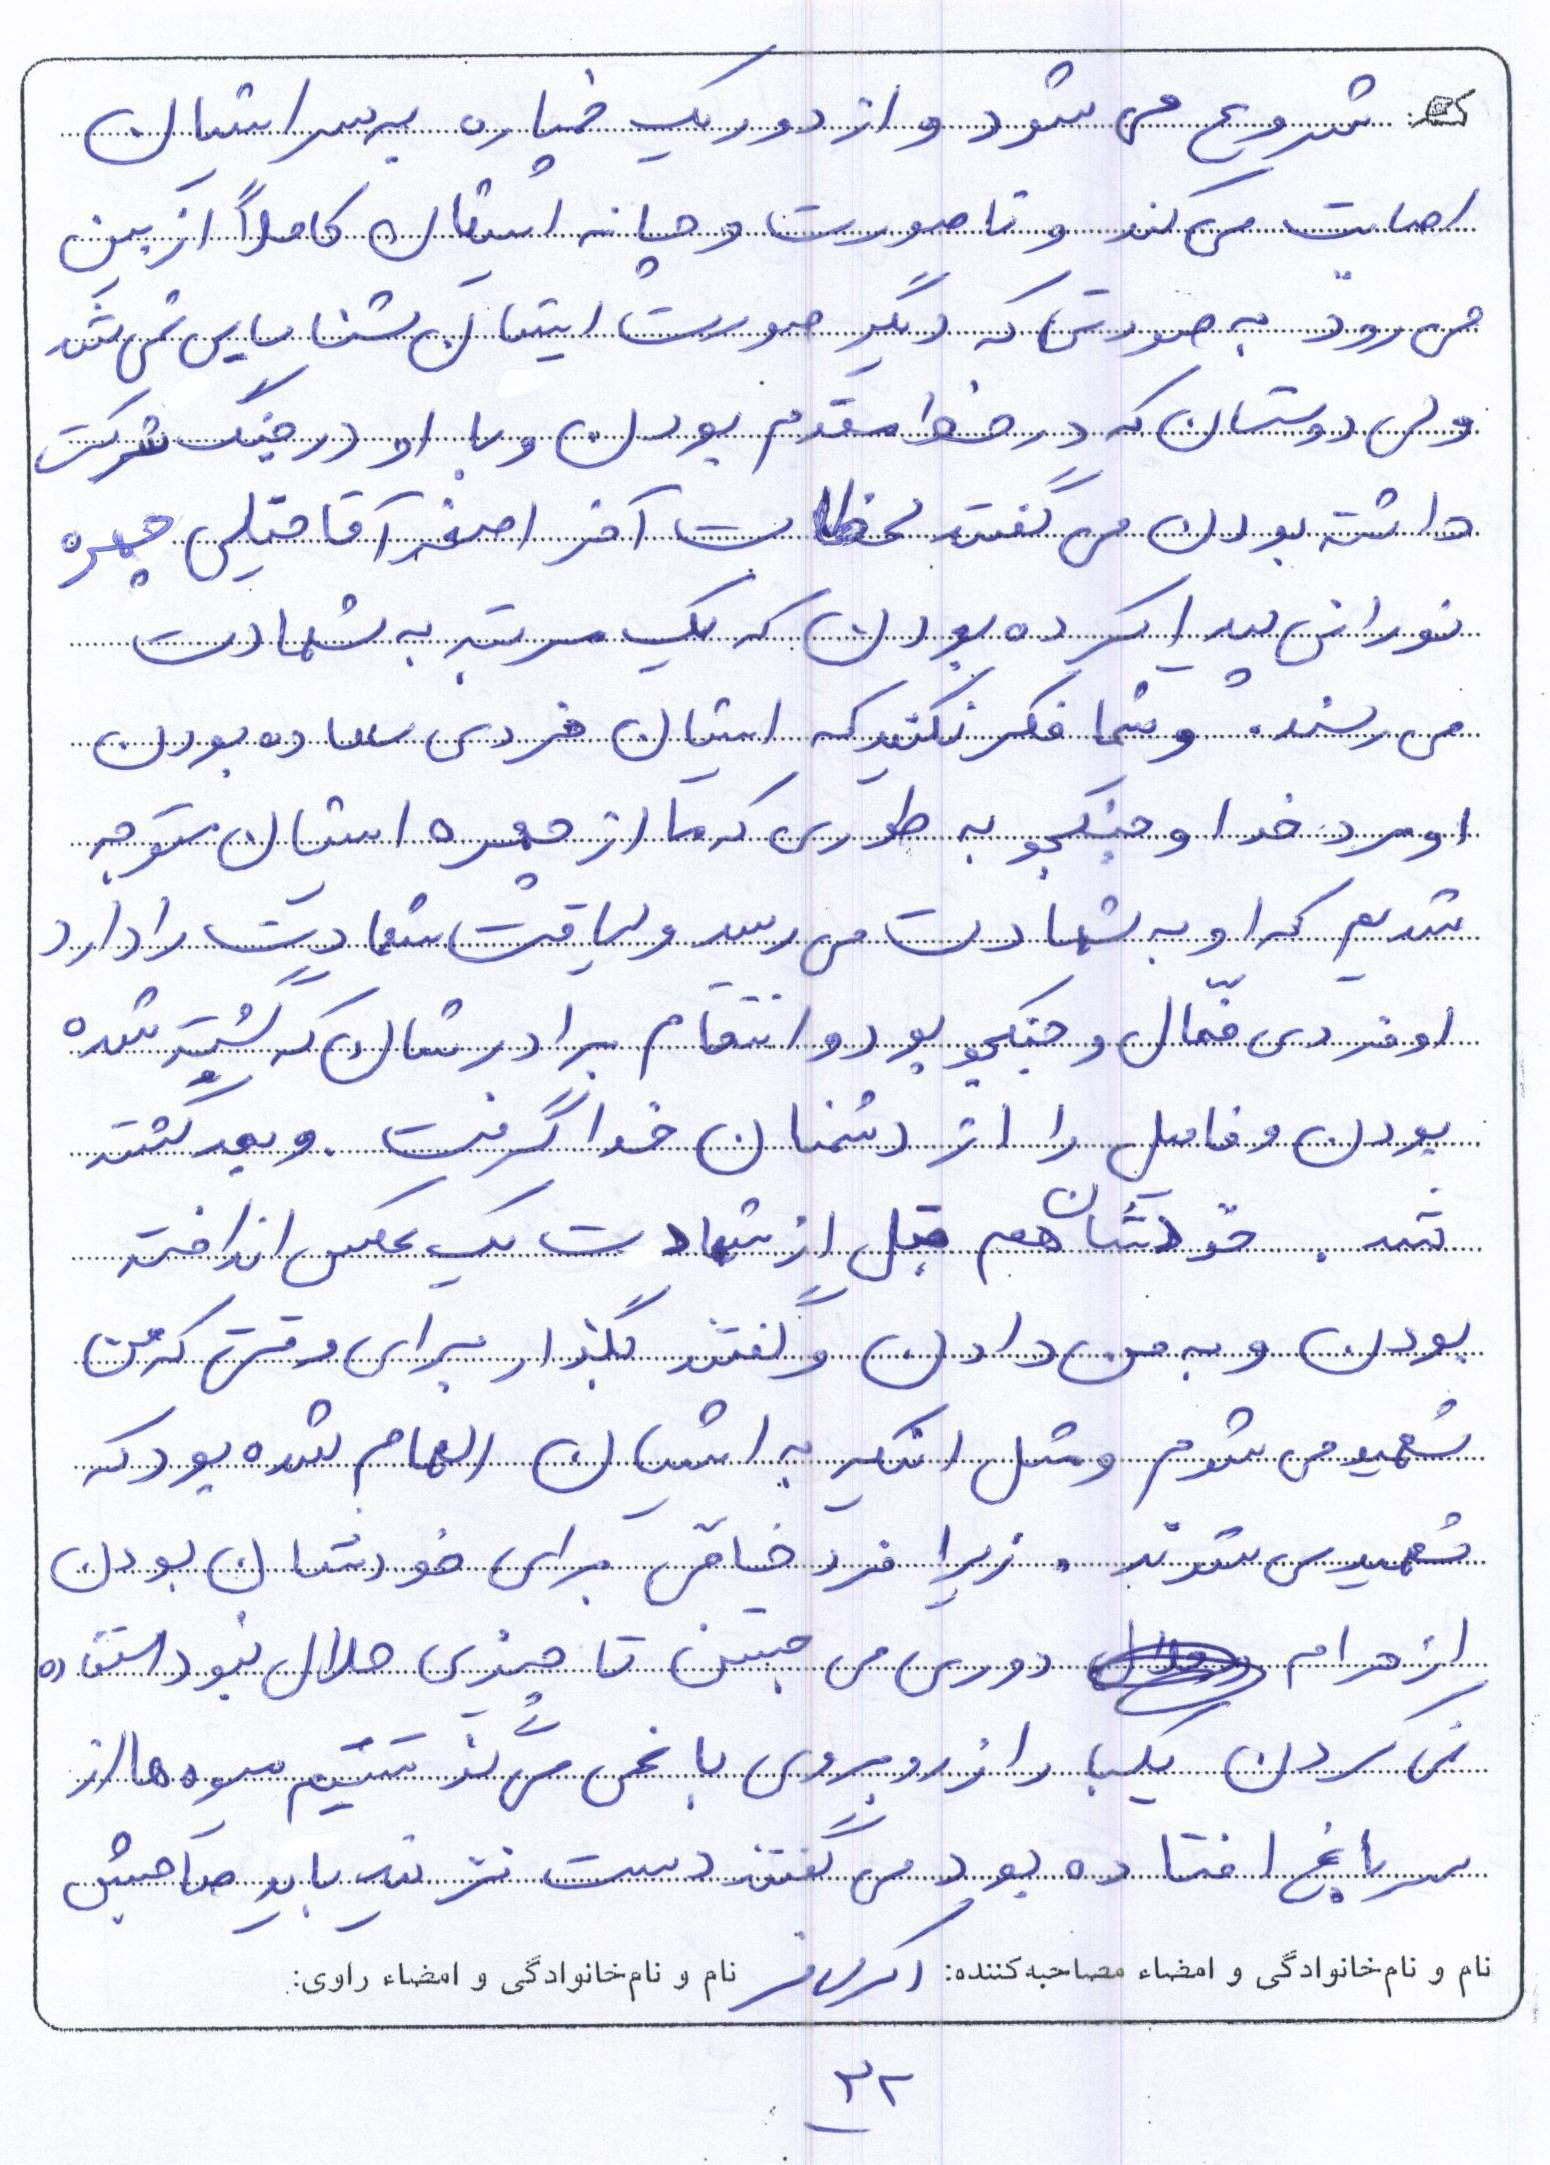 شروع می شود و از دور یک خمپاره به سر ایشان
اصابت می کند و تا صورت و چانه ایشان کاملاً از بین
می رود به صورتی که دیگر صورت ایشان شناسایی نمی شد
ولی دوستان که در خط مقدم بودن و با او در جنگ شرکت
داشته بودن می گفتند لحظات آخر اصغر آقا خیلی چهره
نورانی پیدا کرده بودن که یک مرتبه به شهادت
می رسند. و شما فکر نکنید که ایشان فردی ساده بودن
او مرد خدا و جنگجو به طوری که ما از چهره ایشان متوجه
شدیم که او به شهادت می رسد و لیاقت شهادت را دارد
او فردی فعّال و جنگجو بود و انتقام برادرشان که کشته شده
بودن و فامیل را از دشمنان خدا گرفت. و بعد کشته
شد. خودشان هم قبل از شهادت یک عکس انداخته
بودن و به من دادن و گفتند بگذار برای وقتی که من
شهید می شوم و مثل اینکه به ایشان الهام شده بود که
شهید می شوند. زیرا فرد خاصّی برای خودشان بودن
از حرام دوری می جستن تا چیزی حلال نبود استفاده
نمی کردن یکبار از روبروی باغی می گذشتیم میوه ها از
سر باغ افتاده بود می گفتند دست نزنید باید صاحبش
نام و نام‌خانوادگی و امضاء مصاحبه‌کننده: نام و نام‌خانوادگی و امضاء راوی:
۳۲